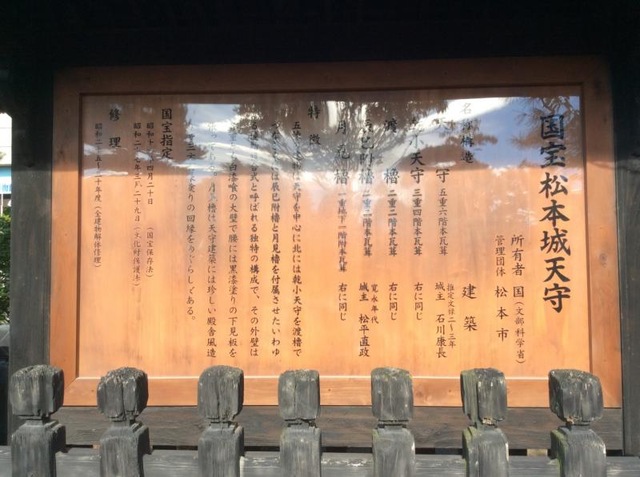 国宝松本城天守
所有者 国(文部科学省)
管理団体 松本市
構造 建築
守 五重六階本瓦葺 推定文禄二〜三年 城主 石川康長
小天守 三重四階本瓦葺 右に同じ
渡櫓 二重二階本瓦葺 右に同じ
辰巳附櫓 二重二階本瓦葺 寛永年代 城主 松平直政
月見櫓 一重地下一階附本瓦葺 右に同じ
特徴
天守を中心に北には乾小天守を渡櫓で
は辰巳附櫓と月見櫓を付属させたいわゆ
式と呼ばれる独特の構成で、その外壁は
漆喰の大壁で腰には黒漆塗りの下見板を
月見櫓は天守建築には珍しい殿舎風造
塗りの回縁をめぐらしとある。
国宝指定
昭和十一年四月二十日 (国宝保存法)
昭和二十七年三月二十九日 (文化財保護法)
修理
昭和二十五〜三十年度 (全建物解体修理)